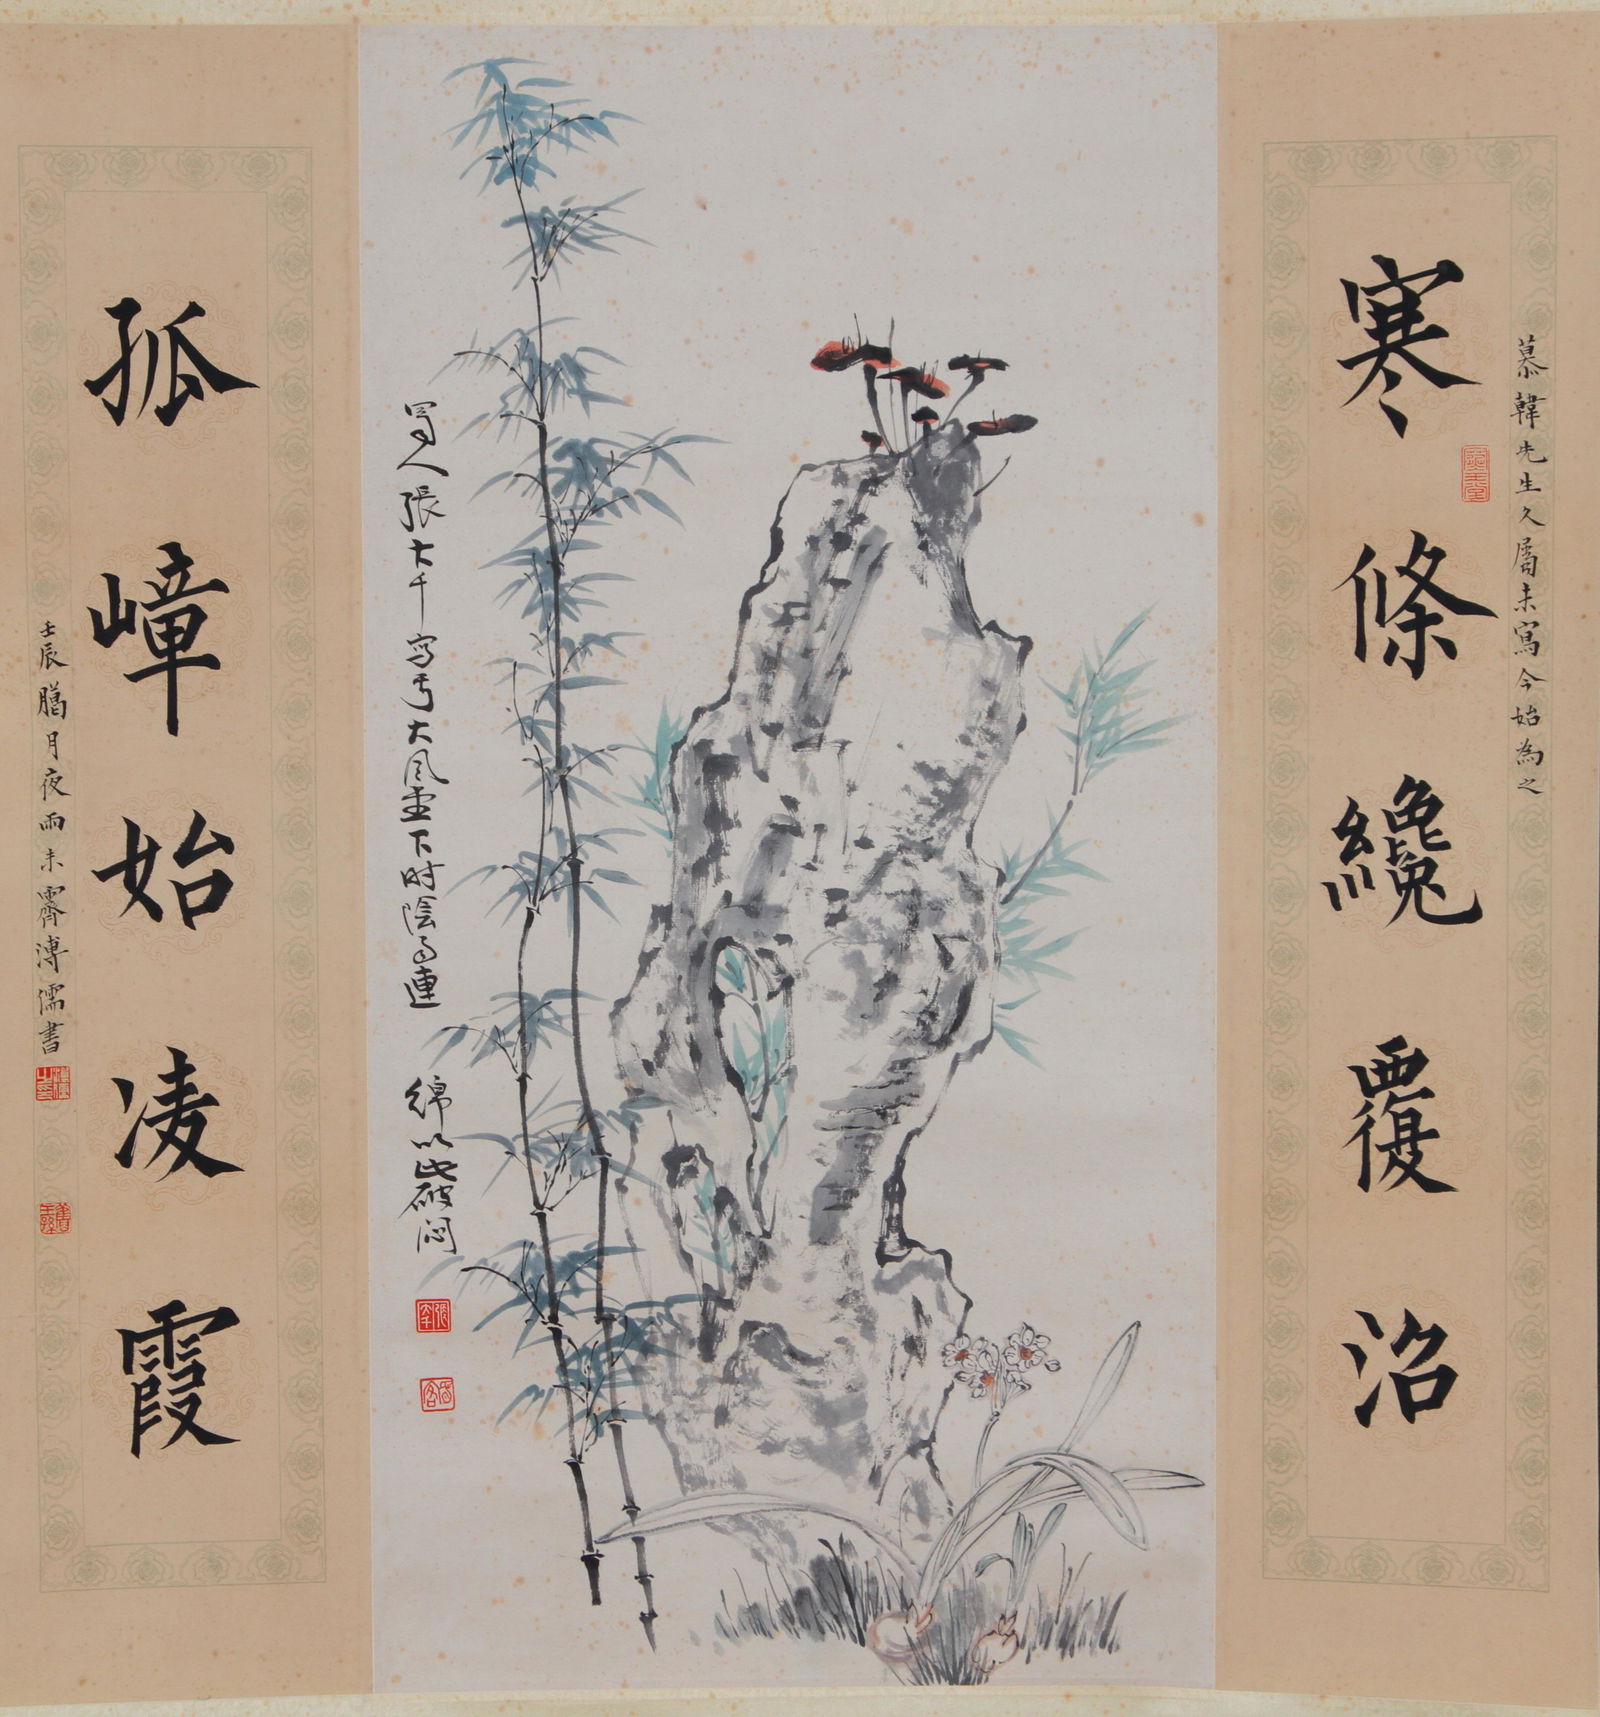 慕韓先生久屬未寫今始為之
寒條纔覆沼
孤嶂始凌霞
壬辰臈月夜雨未霽溥儒書
蜀人張大千寫于大風堂下時陰雨連
綿以此破悶